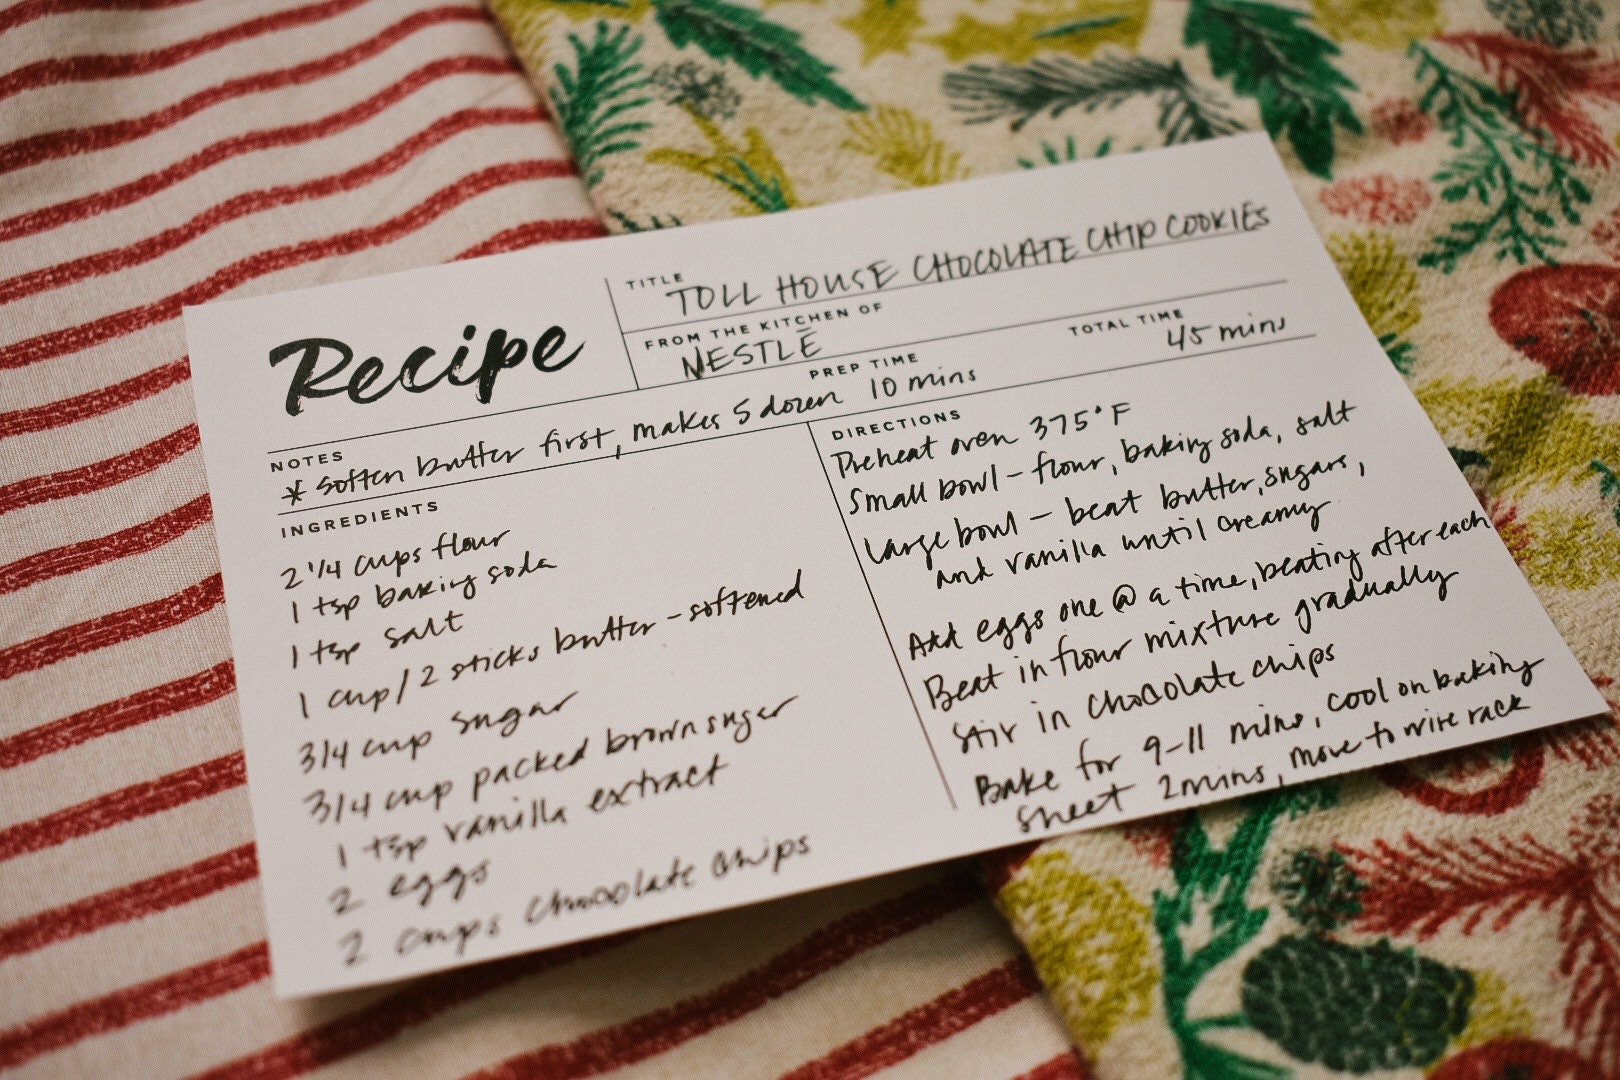 Recipe
TITLE
TOLL HOUSE CHOCOLATE CHIP COOKIES
FROM THE KITCHEN OF
NESTLĒ
PREP TIME
10 mins
TOTAL TIME
45 mins
NOTES
* soften butter first, makes 5 dozen
INGREDIENTS
2 1/4 cups flour
1 tsp baking soda
1 tsp salt
1 cup / 2 sticks butter - softened
3/4 cup sugar
3/4 cup packed brown sugar
1 tsp vanilla extract
2 eggs
2 cups chocolate chips
DIRECTIONS
Preheat oven 375° F
Small bowl - flour, baking soda, salt
Large bowl - beat butter, sugars,
and vanilla until creamy
Add eggs one @ a time, beating after each
Beat in flour mixture gradually
Stir in chocolate chips
Bake for 9-11 mins, cool on baking
sheet 2 mins, move to wire rack